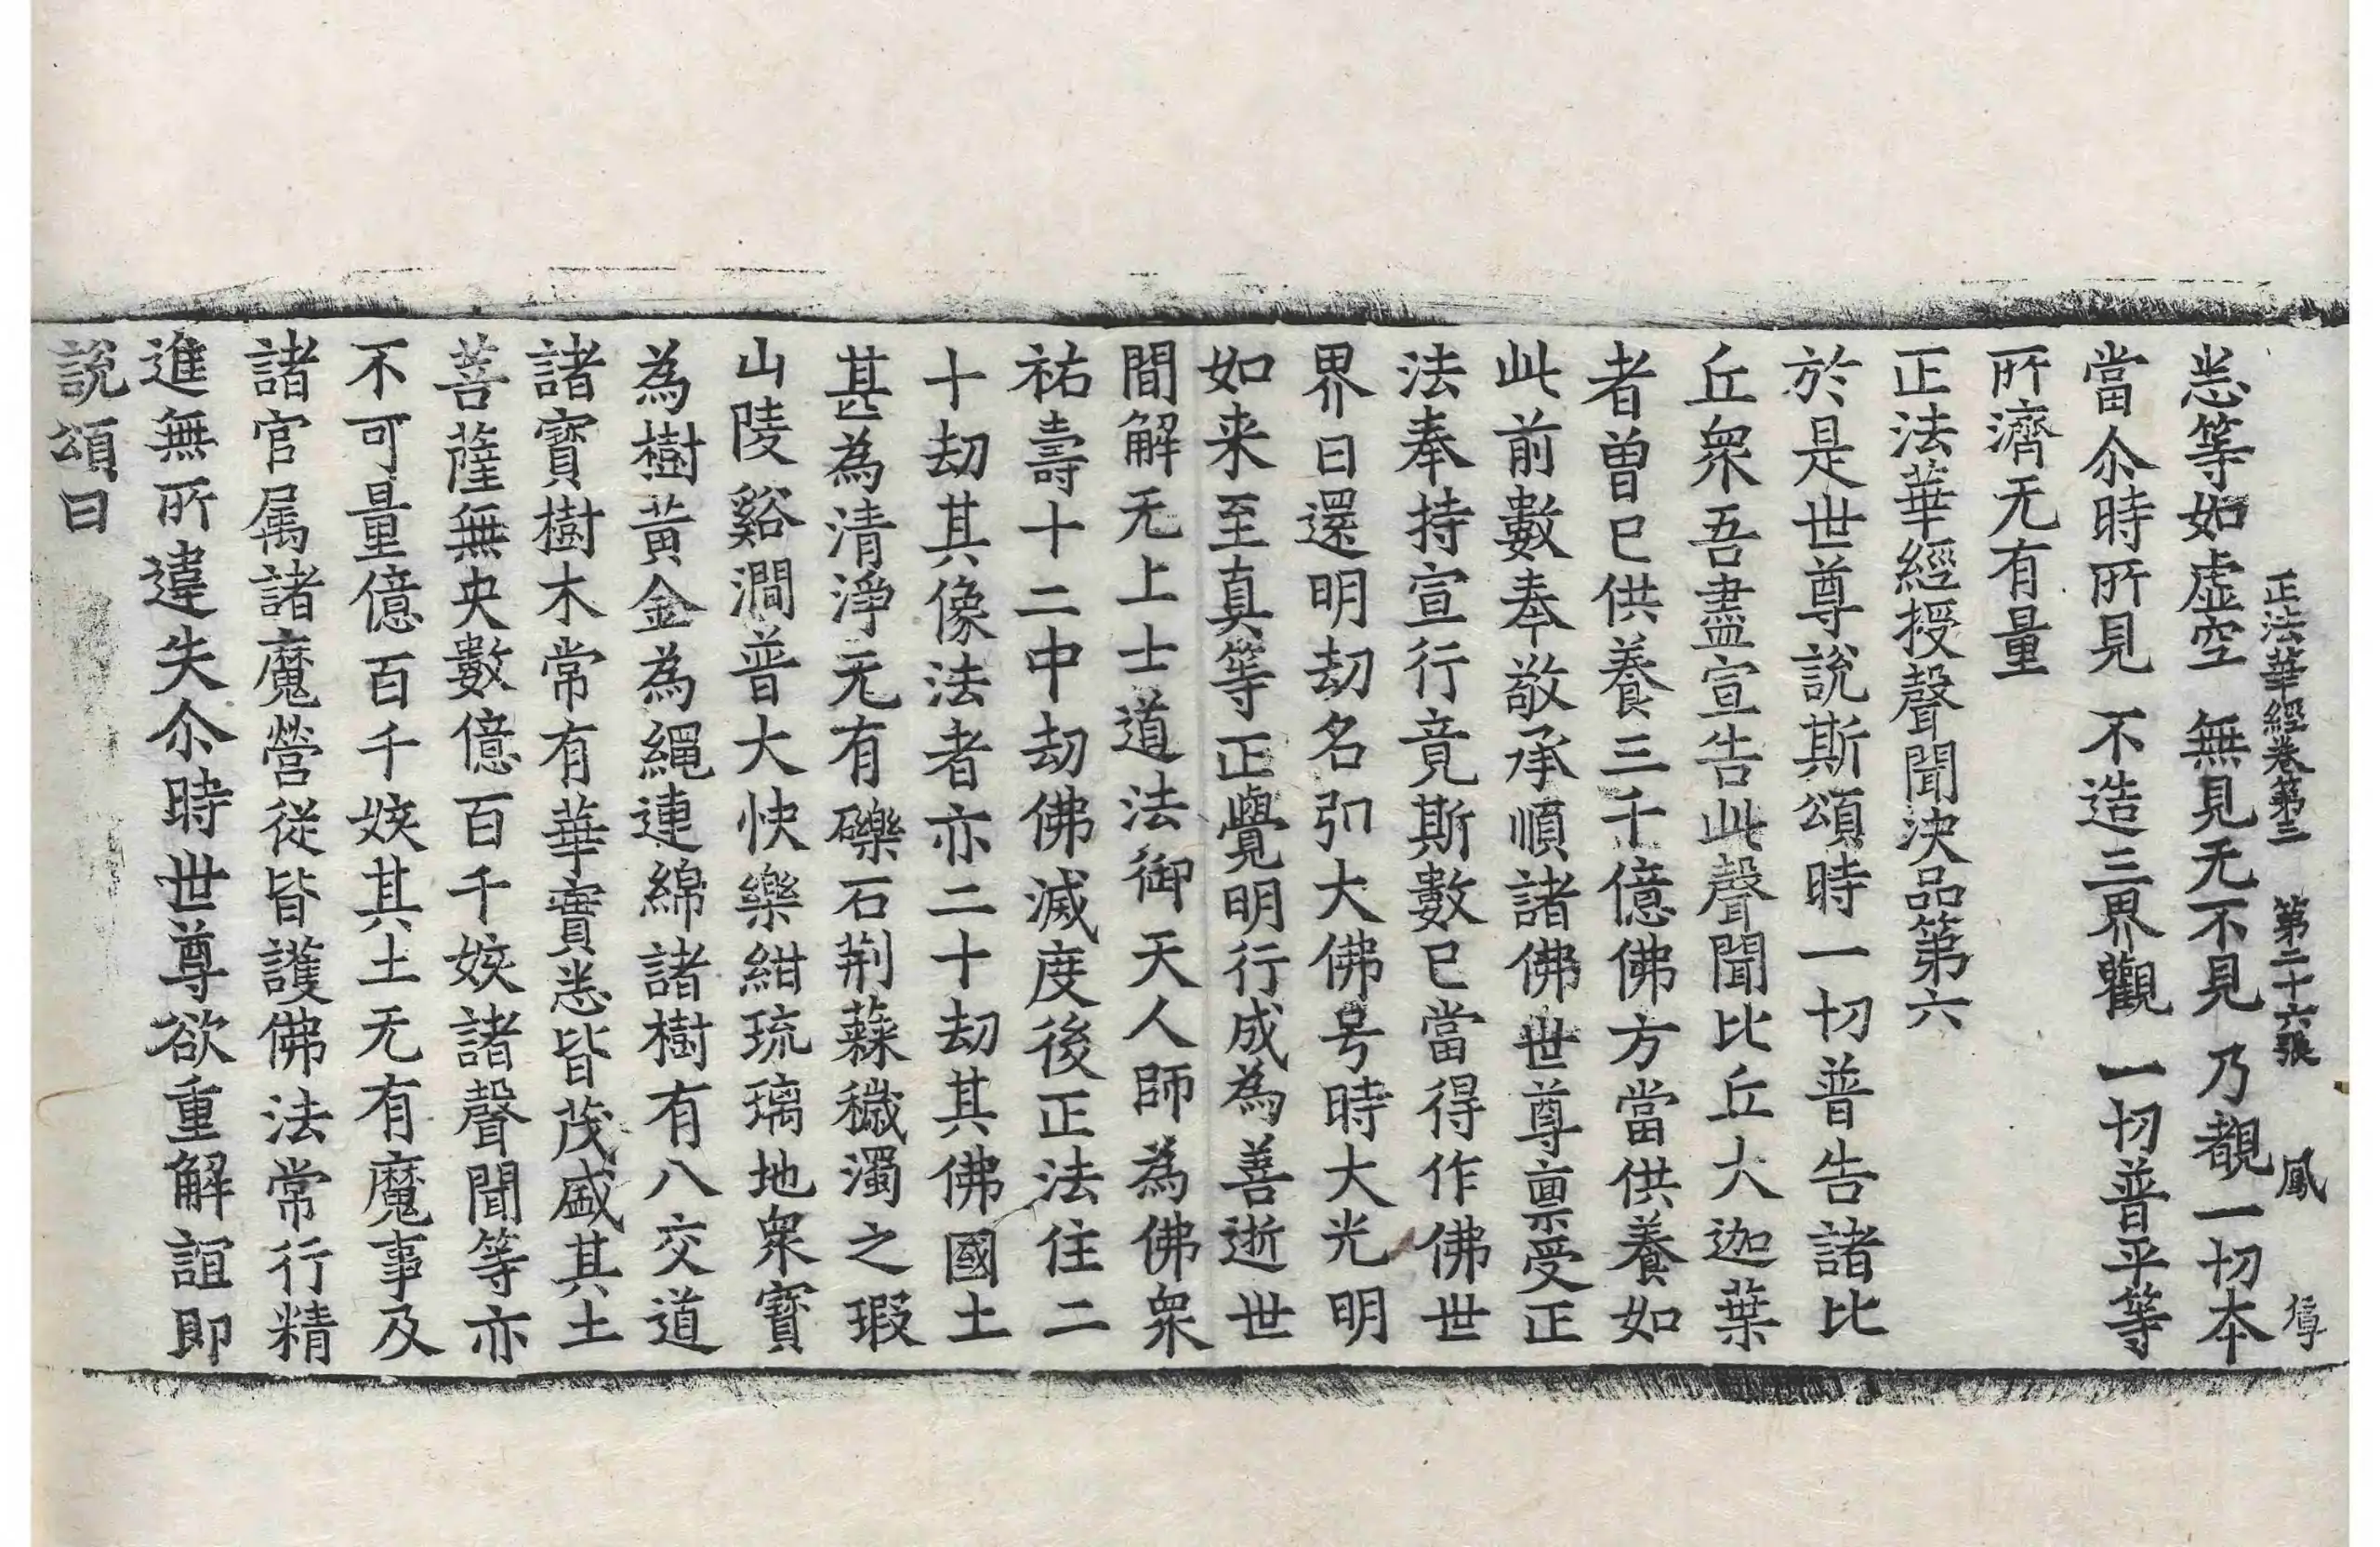 正法華經卷第三 第二十六張 鳳
悉等如虛空 無見无不見 乃覩一切本
當尒時所見 不造三界觀 一切普平等
所濟无有量
正法華經授聲聞決品第六
於是世尊說斯頌時一切普告諸比
丘衆吾盡宣告此聲聞比丘大迦葉
者曾已供養三千億佛方當供養如
此前數奉敬承順諸佛世尊禀受正
法奉持宣行竟斯數已當得作佛世
界曰還明劫名弘大佛号時大光明
如来至真等正覺明行成為善逝世
間解无上士道法御天人師為佛衆
祐壽十二中劫佛滅度後正法住二
十劫其像法者亦二十劫其佛國土
甚為清淨无有礫石荆蕀穢濁之瑕
山陵谿澗普大快樂紺琉璃地衆寳
為樹黃金為繩連綿諸樹有八交道
諸寳樹木常有華實悉皆茂盛其土
菩薩無央數億百千姟諸聲聞等亦
不可量億百千姟其土无有魔事及
諸官属諸魔營從皆護佛法常行精
進無所違失尒時世尊欲重解誼即
說頌曰